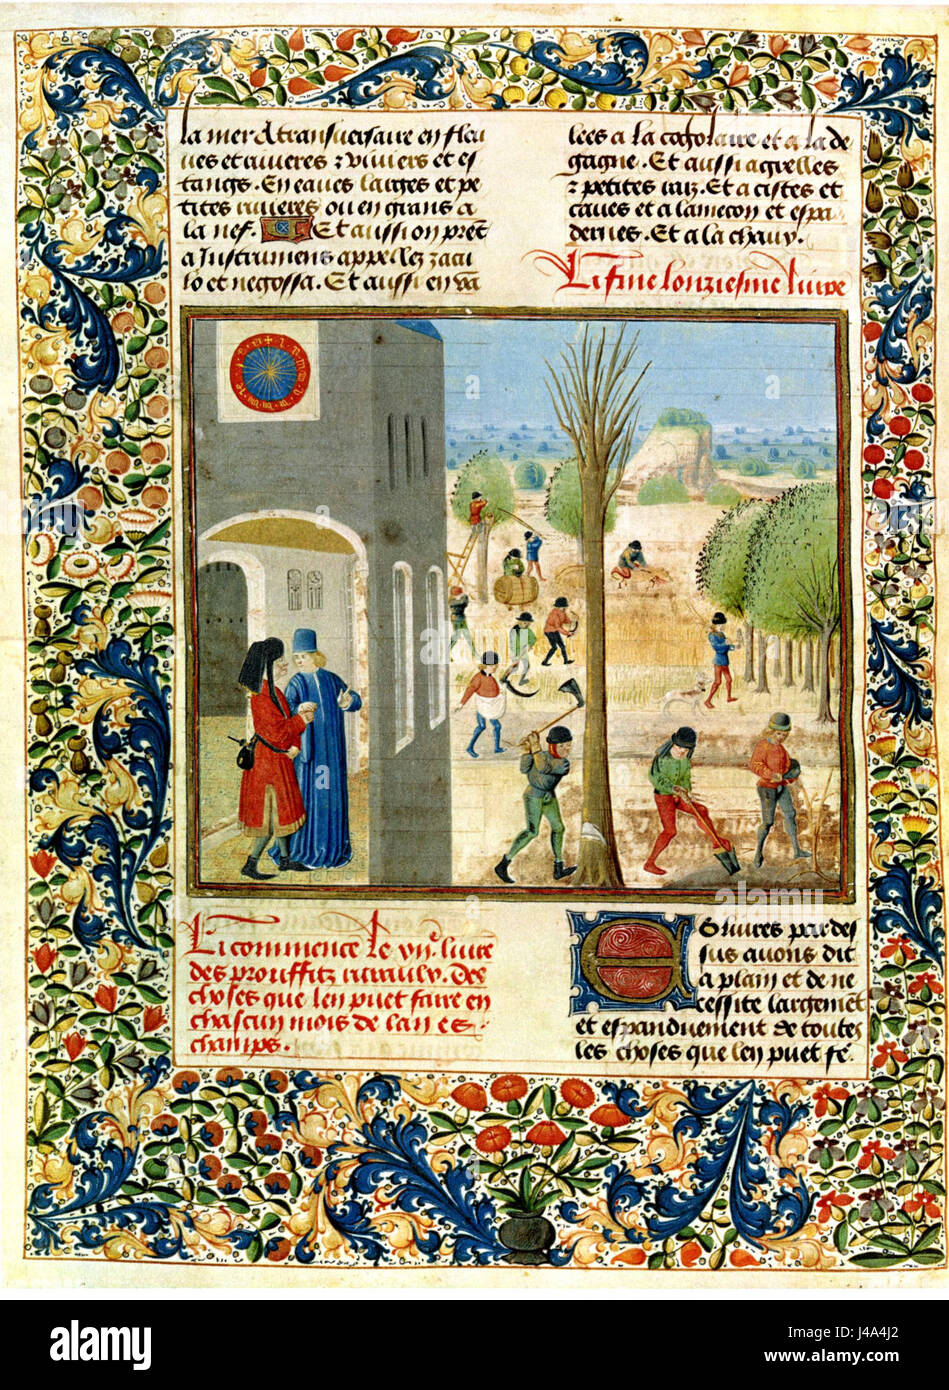 la mer & transversaire en fleu
ves et rivieres & viviers et es
tangs. En eaues larges et pe
tites rivieres ou en grans a
la nef. Et aussi on prēt
a Instrumens appellez zacu
lo et negossa. Et aussi en va
lees a la cogolaire et a la de
gagne. Et aussi agvelles
& petites raiz. Et a cistes et
caves et a lamecon et espa
dernes. Et a la chauv.
Ci fine lonziesme livre
Ci commence le
livre
des prouffitz ruraulx. Des
choses que len puet faire en
chascun mois de lan es
champs.
Es livres par des
sus avons dit
a plain et de ne
cessite largemēt
et espanduement de toutes
les choses que len puet fe
alamy
a
alamy
Image ID: J4A4J2
www.alamy.com